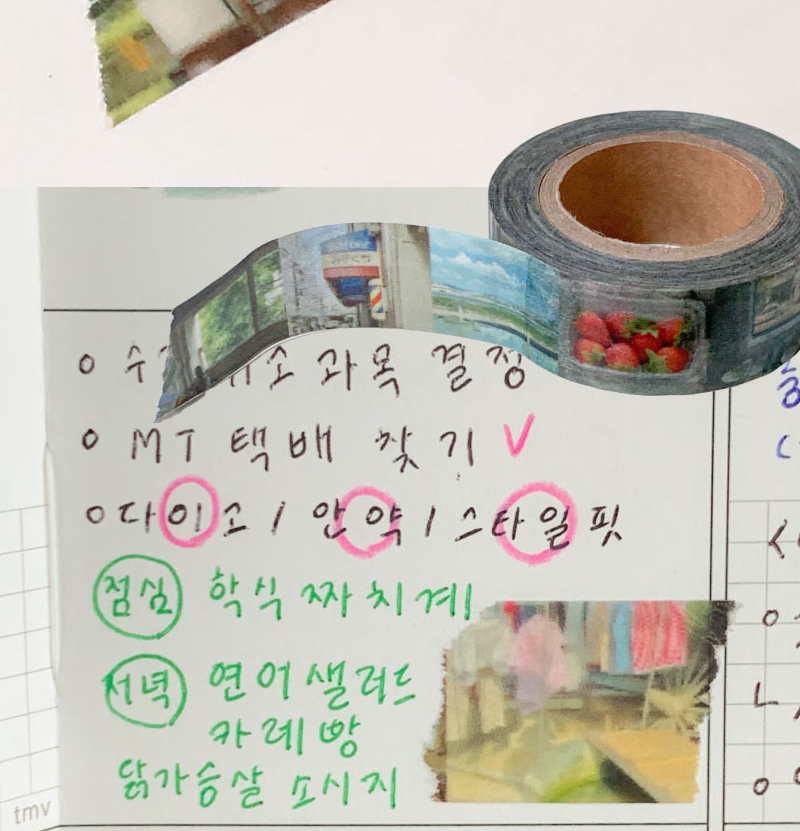 과목 결정
MT 택배 찾기 V
다이소 / 안약 / 스타일핏
점심 학식 짜치계
저녁 연어샐러드
카레빵
닭가슴살 소시지
tmv